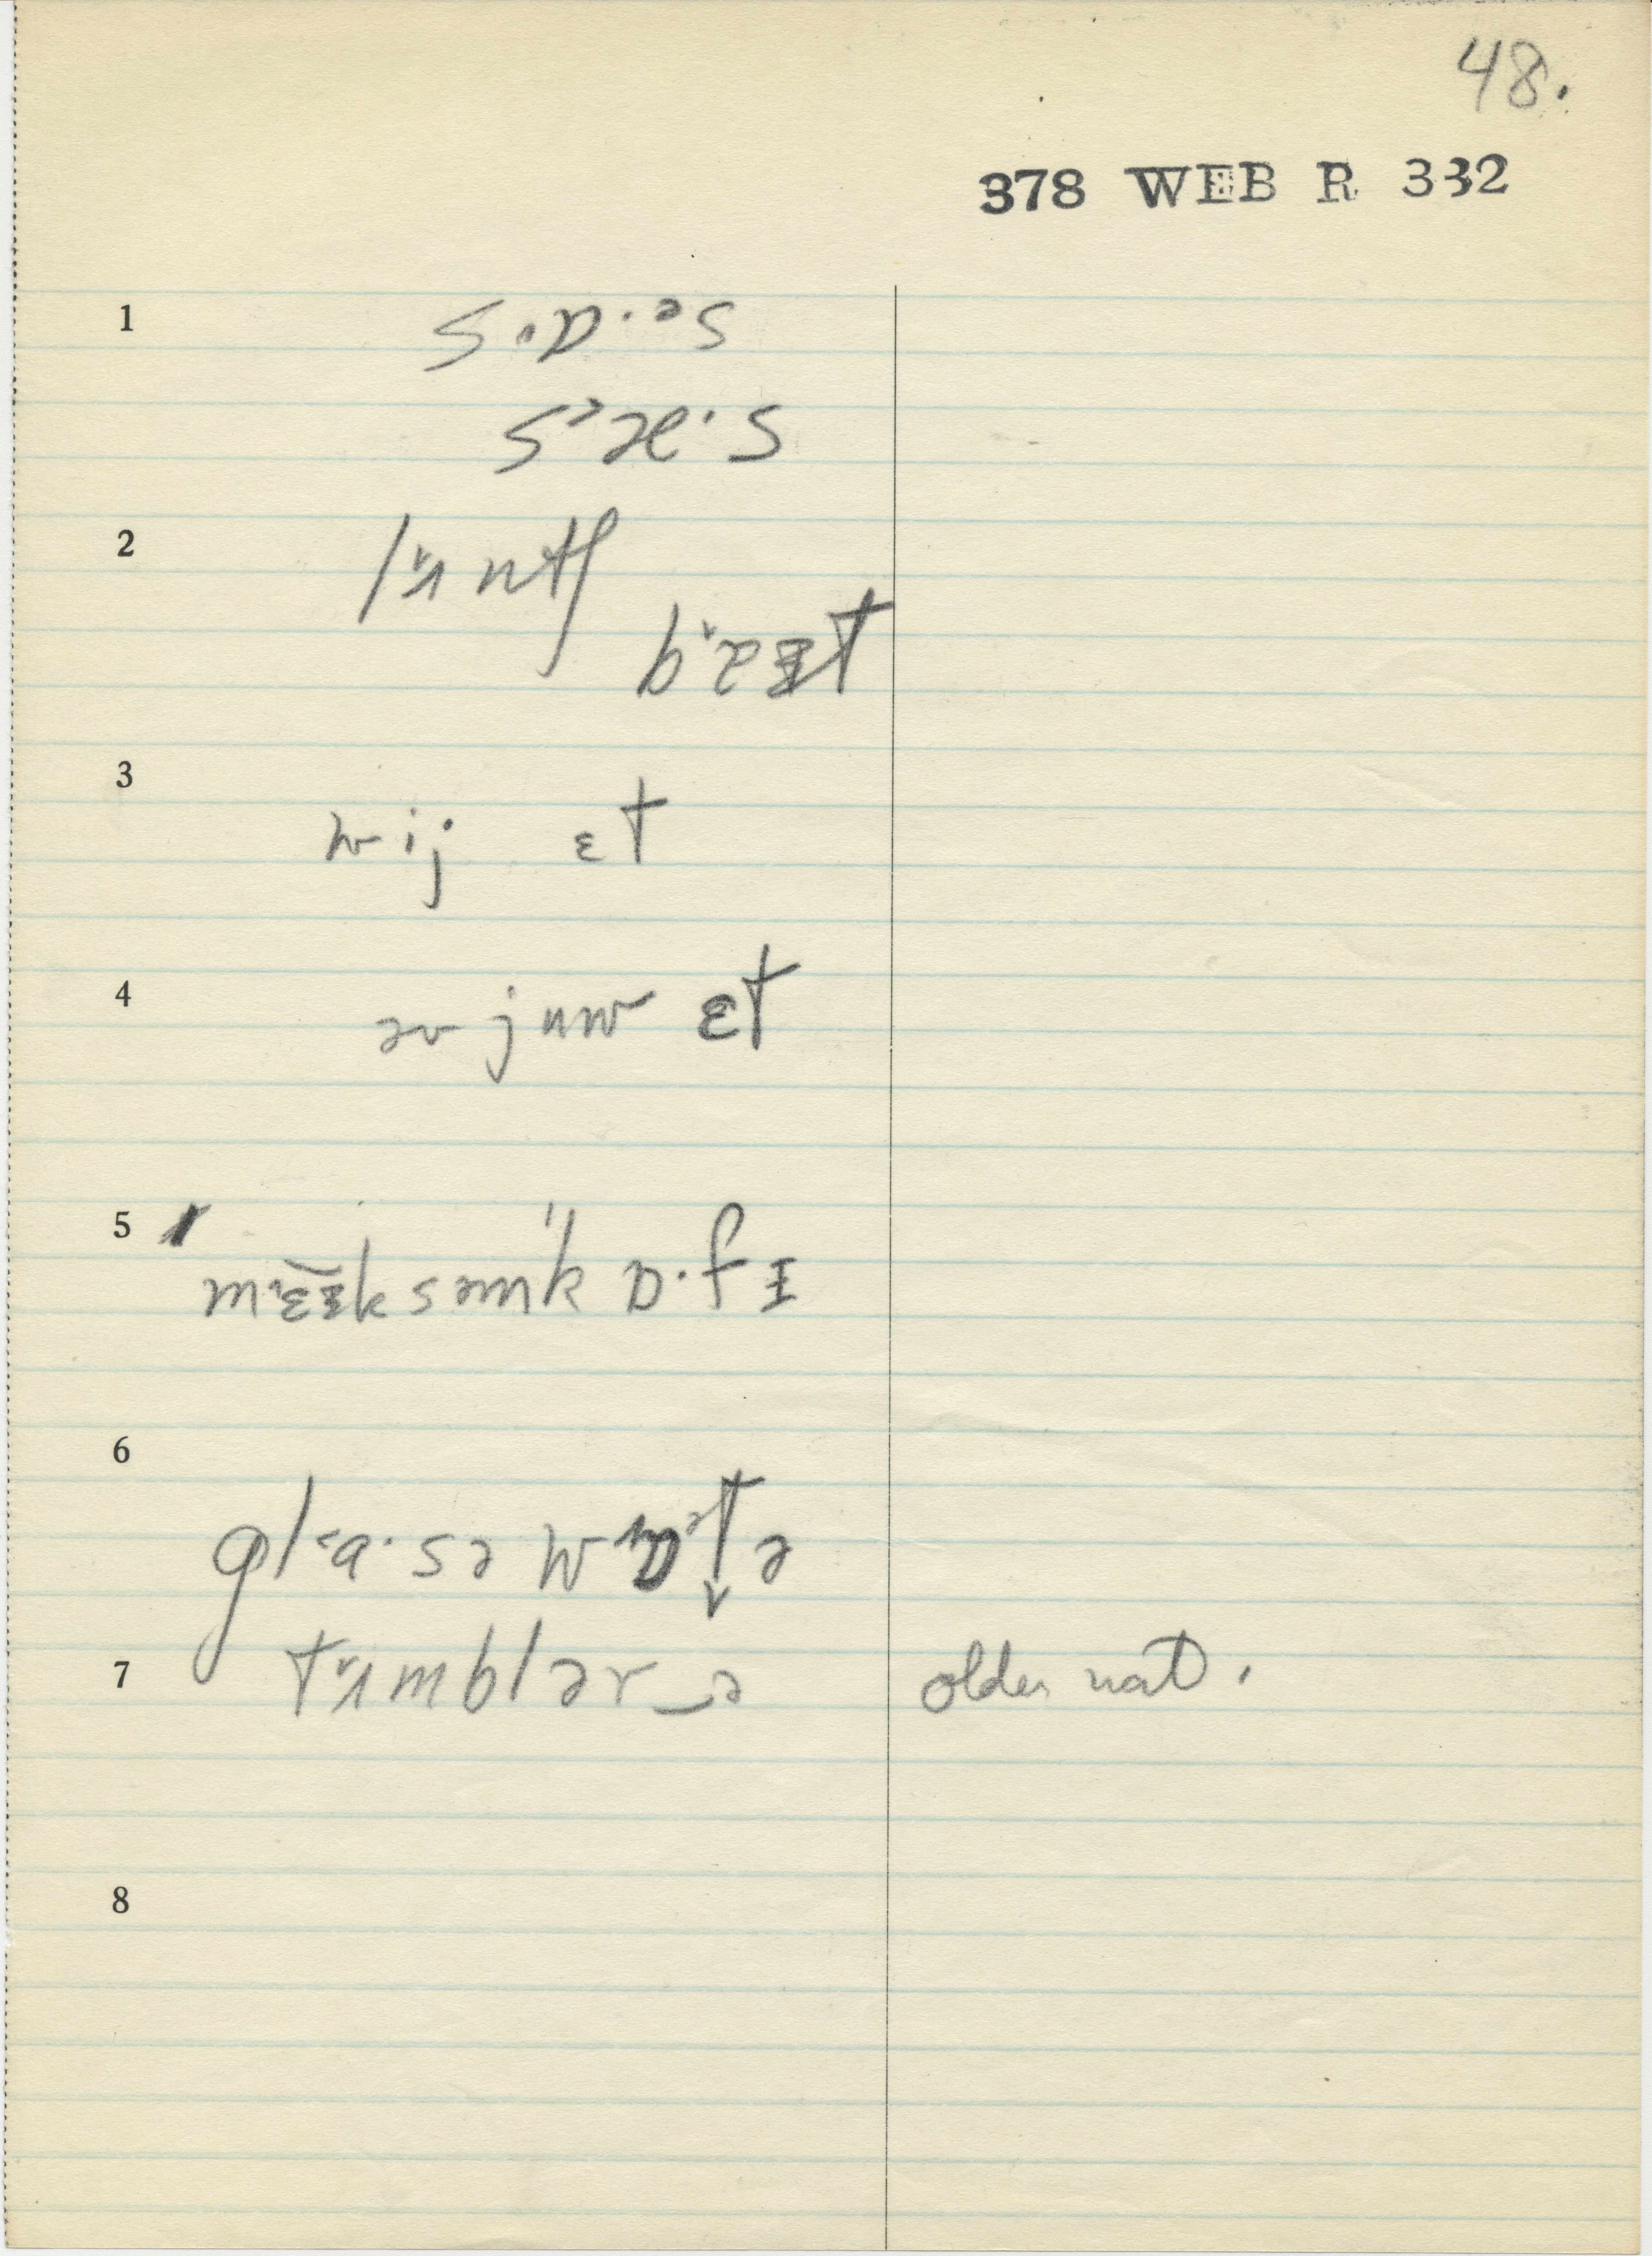 48.
378 WEB R 332
1 s ɒ· ᵊs
s æ· s
2 lʌntʃ
bɜɪt
3 wij ɛt
4 əv juw ɛt
5 mɛɪk səm k ɒ· f ɪ
6 gl a· s ə w ɒ t ə
7 tʌmblər‿ə older nat.
8